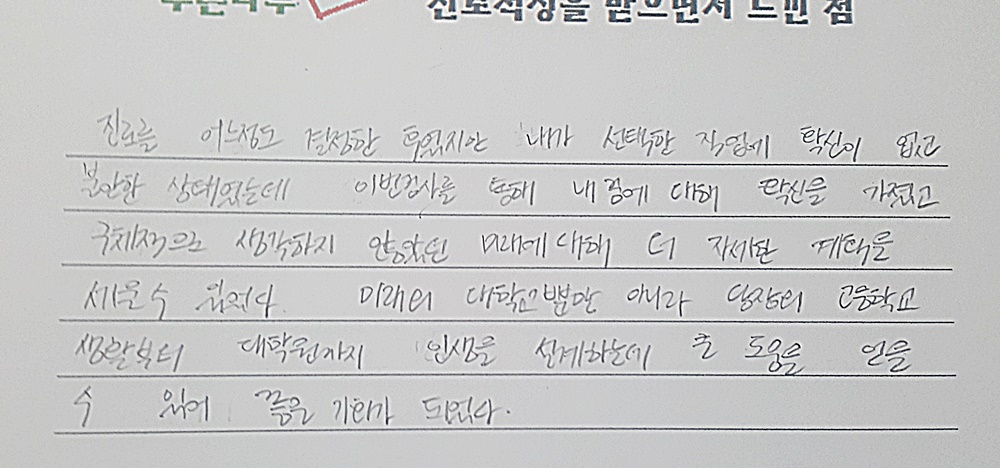 푸른나무 진로적성을 받으면서 느낀 점
진로를 어느정도 결정한 후였지만 내가 선택한 직업에 확신이 없고
불안한 상태였는데 이번검사를 통해 내 꿈에 대해 확신을 가졌고
구체적으로 생각하지 않았던 미래에 대해 더 자세한 계획을
세울 수 있었다. 미래의 대학교뿐만 아니라 당장의 고등학교
생활부터 대학원까지 인생을 설계하는데 큰 도움을 얻을
수 있어 좋은 기회가 되었다.